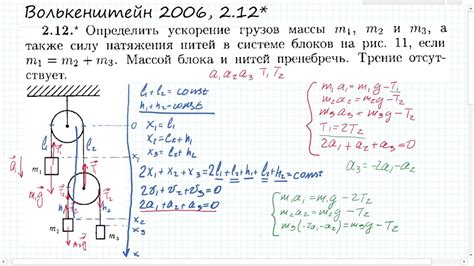 Волькенштейн 2006, 2.12*
2.12.* Определить ускорение грузов массы m₁, m₂ и m₃, а
также силу натяжения нитей в системе блоков на рис. 11, если
m₁ = m₂ + m₃. Массой блока и нитей пренебречь. Трение отсут-
ствует.
a₁ a₂ a₃ T₁ T₂
l₁+l₂=const
h₁+h₂=const
0
x₁=l₁
x₂=l₂+h₁
x₃=l₂+h₂
2x₁+x₂+x₃=2l₁+l₂+h₁+l₂+h₂=const
2v₁+v₂+v₃=0
2a₁+a₂+a₃=0
m₁a₁=m₁g-T₁
m₂a₂=m₂g-T₂
m₃a₃=m₃g-T₂
T₁=2T₂
2a₁+a₂+a₃=0
a₃=-2a₁-a₂
m₁a₁=m₁g-2T₂
m₂a₂=m₂g-T₂
m₃(-2a₁-a₂)=m₃g-T₂
l₁
l₂
T₁
a
m₁
m₁g
T₂
T₂
x₁
m₂
m₂g
m₃
x₂
x₃
x